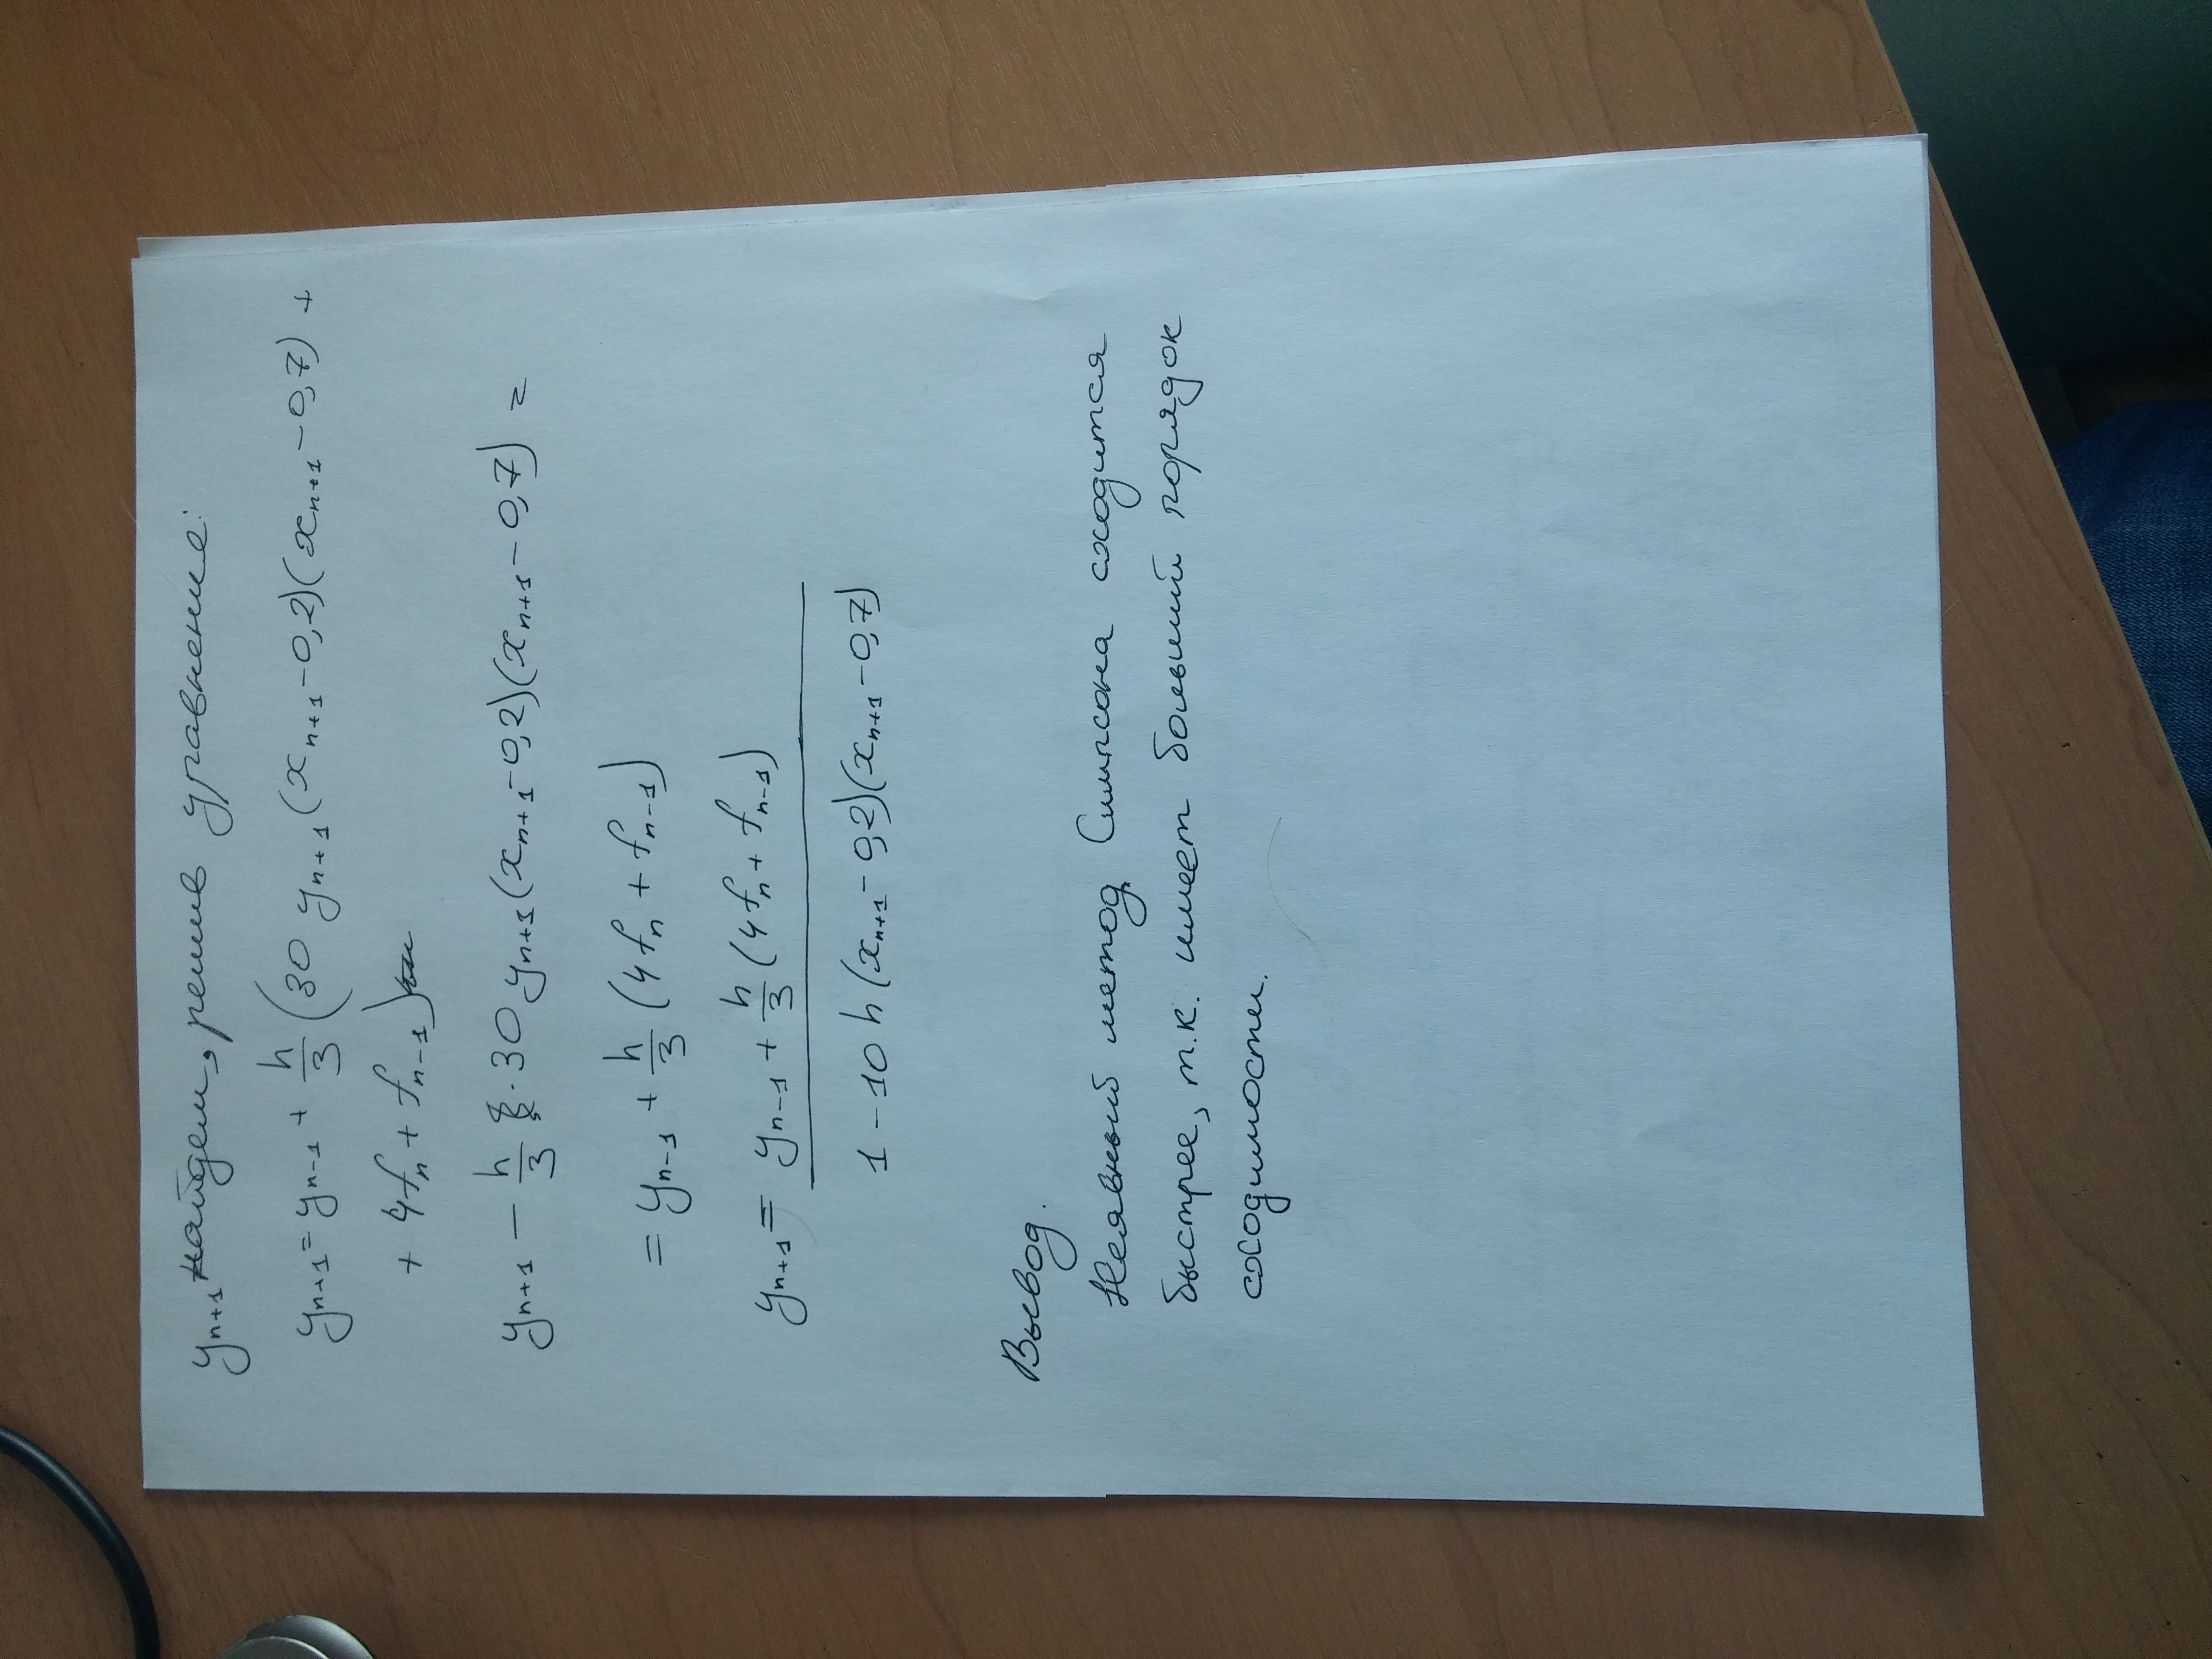 yₙ₊₁ найдем, решив уравнение:
yₙ₊₁ = yₙ₋₁ + h/3 (30 yₙ₊₁(xₙ₊₁ - 0,2)(xₙ₊₁ - 0,7) +
+ 4fₙ + fₙ₋₁)
yₙ₊₁ - h/3 · 30 yₙ₊₁(xₙ₊₁ - 0,2)(xₙ₊₁ - 0,7) =
= yₙ₋₁ + h/3 (4fₙ + fₙ₋₁)
yₙ₊₁ = yₙ₋₁ + h/3 (4fₙ + fₙ₋₁)
1 - 10 h (xₙ₊₁ - 0,2)(xₙ₊₁ - 0,7)
Вывод.
Неявный метод Симпсона сходится
быстрее, т.к. имеет больший порядок
сходимости.